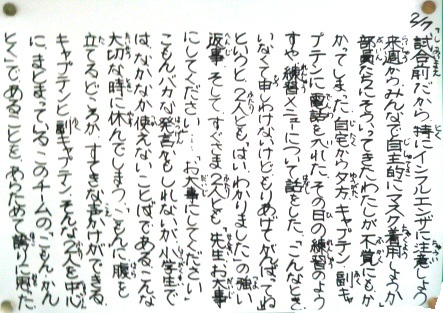 2/7
「試合前だから、特にインフルエンザに注意しよう
来週からみんなで自主的にマスク着用しようか」
部員たちにそういってきたわたしが不覚にもか
かってしまった。自宅から夕方、キャプテン、副キャ
プテンに電話を入れた。その日の練習のよう
すや練習メニューについて話をした。「こんなとき
いなくて申しわけないけどもりあげてがんばってね」
というと、2人とも「はい、わかりました」の強い
返事。そして、すぐさま2人とも「先生、お大事
にしてください」…「お大事にしてください」
こもんバカな発言かもしれないが、小学生で
は、なかなか使えないことばである。こんな
大切な時に休んでしまうこもんに腹を
立てるどころか、すてきな声がけができる
キャプテンと副キャプテン。そんな2人を中心
に、まとまっているこのチームの「こもん」かん
とく」であることを、あらためて誇りに思った。